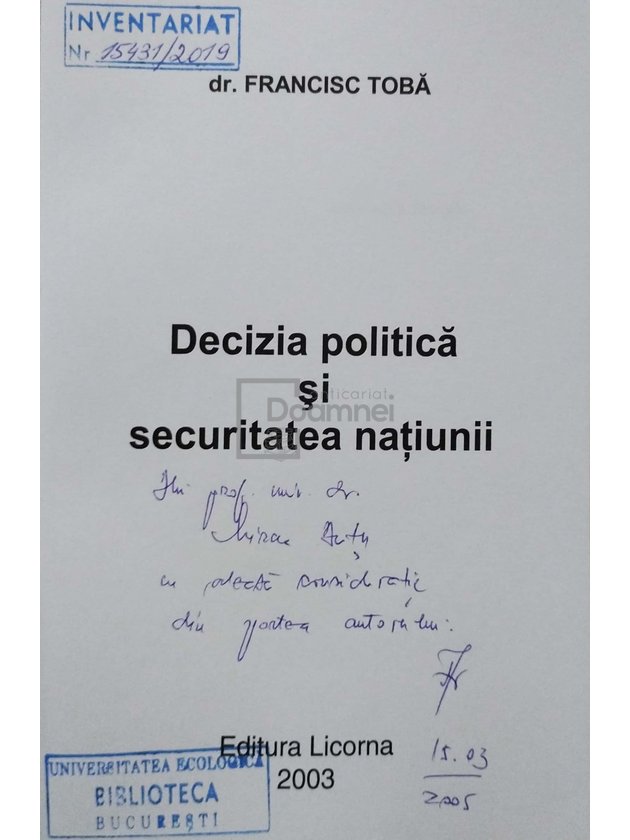 INVENTARIAT
Nr 15431/2019
dr. FRANCISC TOBĂ
Decizia politică
şi
securitatea naţiunii
Anticariat
Doamnei
prof. univ. dr.
Mircea
cu
din partea autorului.
Editura Licorna
2003
15.03
2005
UNIVERSITATEA ECOLOGICĂ
BIBLIOTECA
BUCUREŞTI